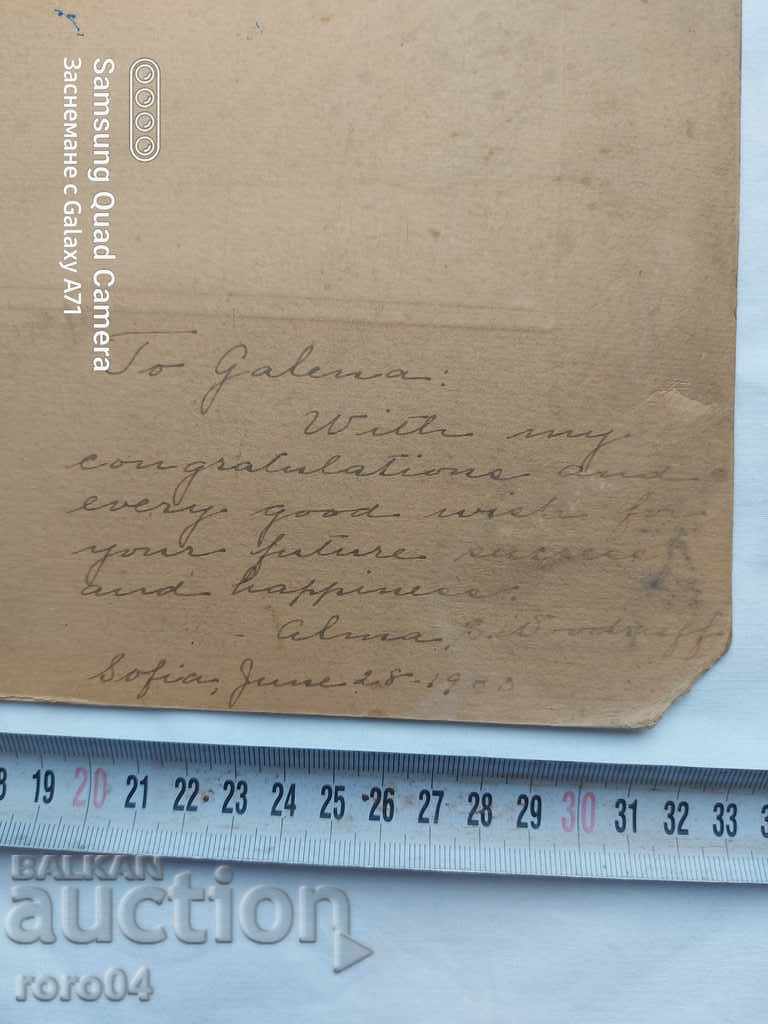 Samsung Quad Camera
Заснемане с Galaxy A71
To Galena:
With my
congratulations and
every good wish for
your future success
and happiness.
- Alma Woodruff
Sofia, June 28-19
19 20 21 22 23 24 25 26 27 28 29 30 31 32 33
BALKAN
auction
roro04